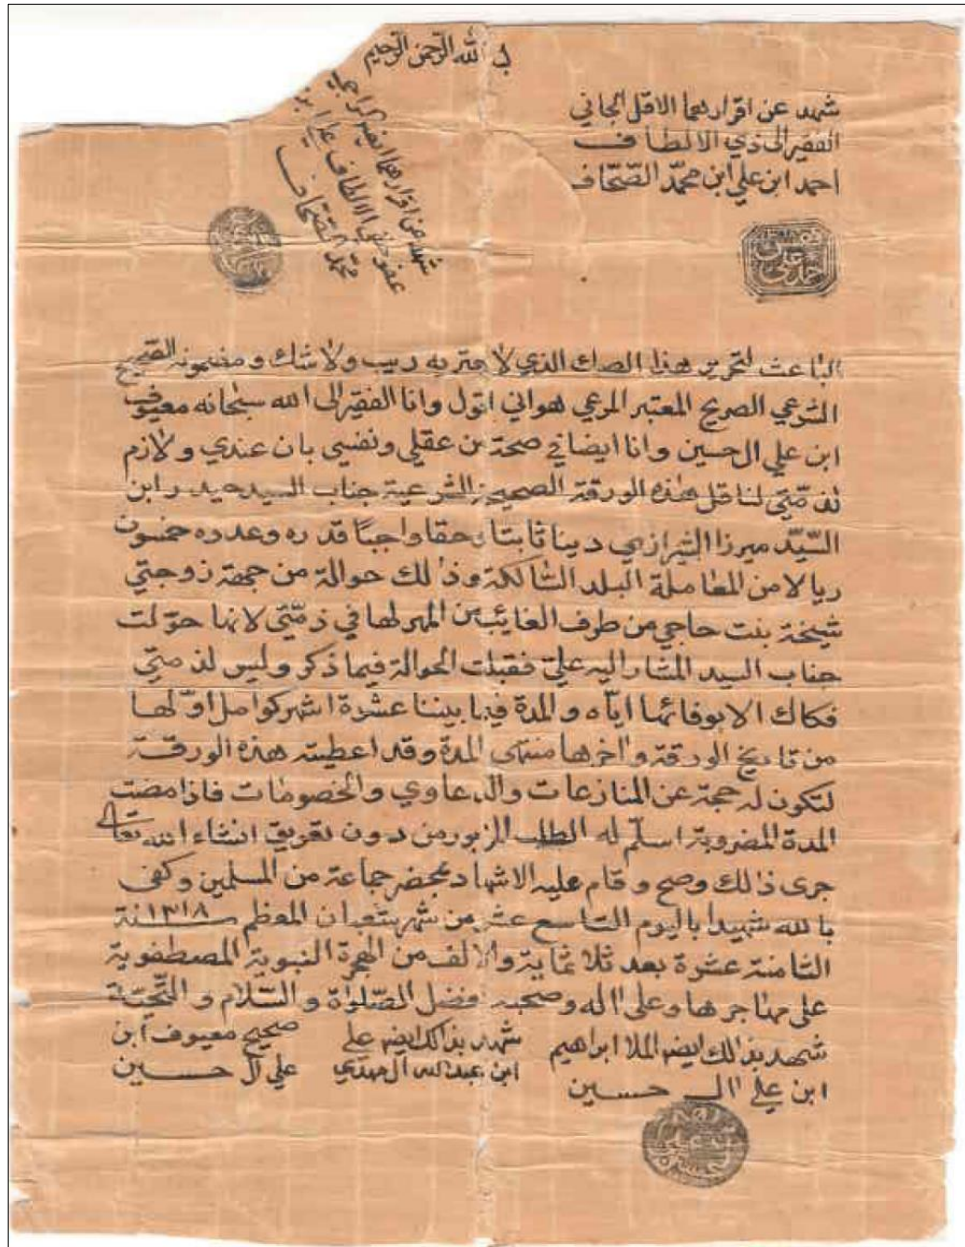 الله الرحمن الرحيم
شهد عن اقرارهما الاقل الجاني
الفقير الى ذي الالطاف
احمد ابن علي ابن محمد الصحاف
شهد عن اقرارهما ايضا
عفو خفي الالطاف علي ابن
محمد الصحاف
الباعث لتحرير هذا الصك الذي لا يعتريه ريب ولا شك ومضمونه الصحيح
الشرعي الصريح المعتبر المرعي هو اني اقول وانا الفقير الى الله سبحانه معيوف
ابن علي ال حسين وانا ايضا في صحة من عقلي ونفسي بان عندي ولازم
لذمتي لناقل هذه الورقة الصحيحة الشرعية جناب السيد حيدر ابن
السيد ميرزا الشيرازي دينا ثابتا وحقا واجبا قدره وعدده خمسون
ريالا من المعاملة البلد السالكة وذالك حوالة من جهة زوجتي
شيخة بنت حاجي من طرف الغائب من المهر لها في ذمتي لانها حولت
جناب السيد المشار اليه علي فقبلت الحوالة فيما ذكر وليس لذمتي
فكاك الا بوفائها اياه والمدة فيما بيننا عشرة اشهر كوامل اولها
من تاريخ الورقة واخرها منتهى المدة وقد اعطيته هذه الورقة
لتكون له حجة عن المنازعات والدعاوي والخصومات فاذا مضت
المدة المضروبة اسلم له الطلب المزبور من دون تعويق انشاء الله تعالى
جرى ذالك وصح وقام عليه الاشهاد بمحضر جماعة من المسلمين وكفى
بالله شهيدا باليوم التاسع عشر من شهر شعبان المعظم سنة ١٣١٨
الثامنة عشرة بعد ثلاثماية والالف من الهجرة النبوية المصطفوية
على مهاجرها وعلى اله وصحبه فضل الصلواة والسلام والتحية
شهد بذالك ايضا الملا ابراهيم
ابن علي ال حسين
شهد بذالك ايضا علي
ابن عبدالله ال مهدي
صحيح معيوف ابن
علي ال حسين